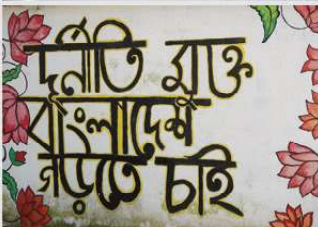 দুর্নীতি মুক্ত
বাংলাদেশ
গড়তে চাই